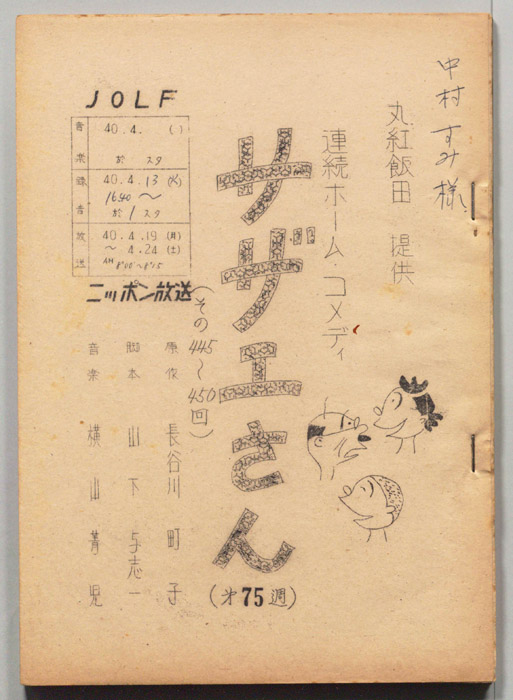 中村すみ様
丸紅飯田 提供
連続ホーム・コメディ
サザエさん
(才75週)
(その445〜450回)
原作 長谷川町子
脚本 山下与志一
音楽 横山菁児
JOLF
音楽 40.4. ( )
於 スタ
録音 40.4.13(火)
1640〜
於 1 スタ
放送 40.4.19(月)
〜 4.24(土)
AM 8'00〜8'15
ニッポン放送